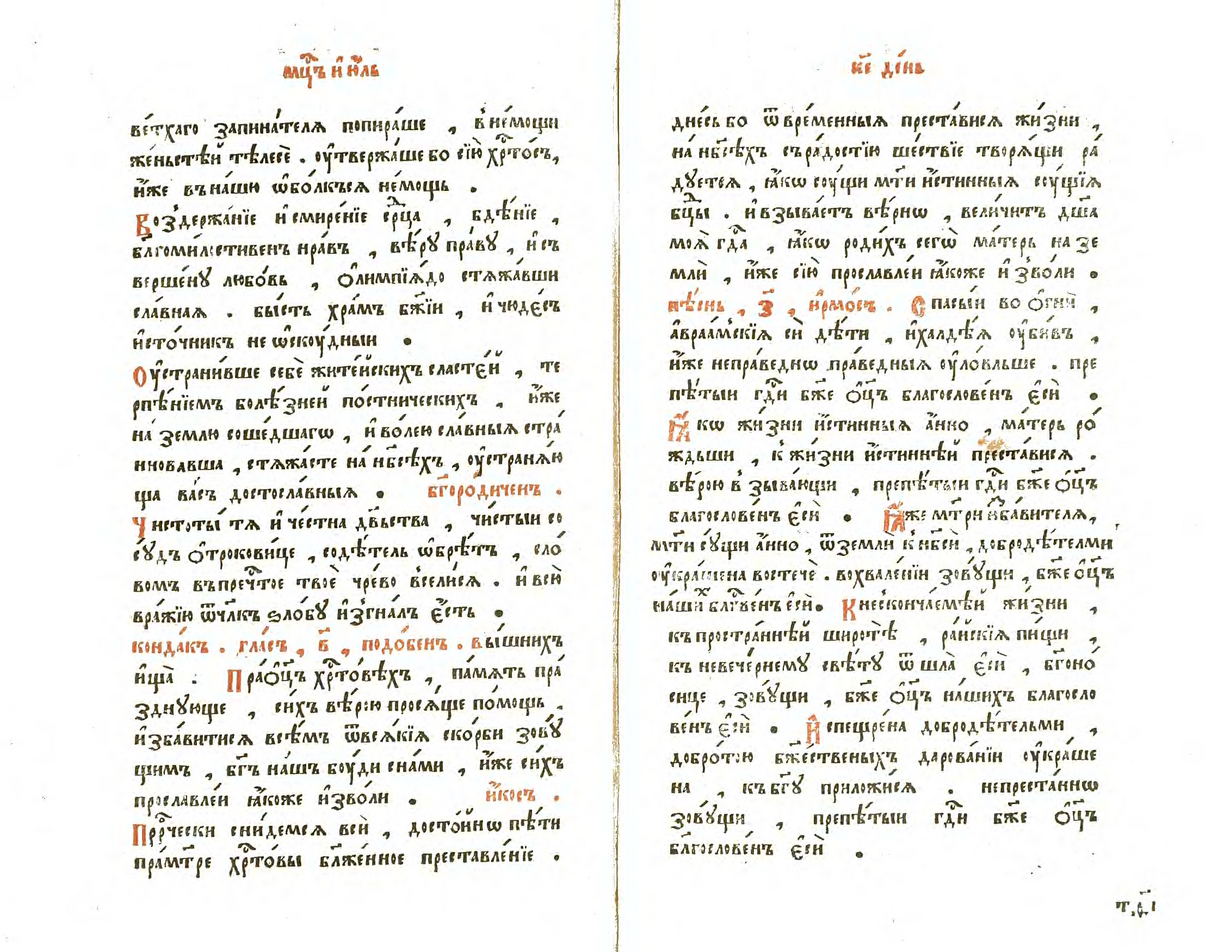 мц҃ъ и҆ ю҆́ль
ве́тхаго запина́телѧ попира́ше , в не́мощи
же́ньстѣ́й тѣ́лесѐ . ѹ҆твержа́ше бо сїю̀ хрⷭ҇то́съ,
и҆́же въ на́шю ѡ҆бо́лкъсѧ не́мощь .
Воздержа́нїе и҆ смире́нїе ср҃ца , бдѣ́нїе ,
бл҃гомилⷭ҇тивенъ нра́въ , вѣ́рꙋ пра́вꙋ , и҆ съ
верше́нꙋ любо́вь , О҆лимпїѧ́до стѧжа́вши
сла́внаѧ . бы́сть хра́мъ бж҃їи , и҆ чюде́съ
и҆сто́чникъ не ѡ҆скоу́дныи .
Оу҆страни́вше себѐ жите́йскихъ сласте́й , те
рпѣ́нїемъ болѣ́зней по́стническихъ , и҆́же
на́ землю соше́дшагѡ , и҆ во́лею сла́вныѧ стра́
нновавша , стѧжа́сте на нб҃сѣ́хъ , ѹ҆страня́ю
ща ва́съ достосла́вныѧ . бг҃оро́диченъ .
Чистоты́ тѧ и҆ че́стна дв҃ьства , чи́стыи со
сꙋ́дъ О҆трокови́це , соде́тель ѡ҆брѣ́тъ , сло́
вомъ въ преч҇тое твоѐ чре́во всели́сѧ . и҆ всю̀
вра́жїю ѿ чл҃къ ѕло́бꙋ и҆згна́лъ є҆́сть .
конда́къ . гла́съ , в҃ , подо́бенъ . вы́шнихъ
и҆ща̀ . Прао҆ц҃ъ хрⷭ҇то́вѣхъ , па́мѧть пра́
зднꙋюще , си́хъ вѣ́рою прося́ще по́мощь .
и҆зба́витисѧ всѣ́мъ ѿ всѧ́кїѧ ско́рби зовꙋ́
щимъ , бг҃ъ на́шъ бо́уди сна́ми , и҆́же си́хъ
просла́влеи ꙗ҆́коже и҆зво́ли . и҆́косъ .
Прⷪ҇ро́чески сни́демсѧ всѝ , досто́йнѡ пѣ́ти
пра́мт҃ре хрⷭ҇то́вы бл҃же́нное преставле́нїе .
к҃е де́нь
дне́сь бо ѿ вре́менныѧ преста́висѧ жи́зни ,
на нб҃сѣ́хъ съ ра́достїю ше́ствїе творѧ́щи ра́
дꙋетсѧ , ꙗ҆́кѡ соу́щи мт҃и и҆́стинныѧ соу́щїѧ
бц҃ы . и҆ взыва́етъ вѣ́рнѡ , вели́читъ дш҃а
моѧ̀ гдⷭ҇а , ꙗ҆́кѡ роди́хъ сегѡ̀ ма́терь на зе
млѝ , и҆́же сїю̀ просла́влеи ꙗ҆́коже и҆зво́ли .
пѣ́снь , з҃ , и҆рмо́съ . Спасы́и во О҆гни̑ ,
а҆враа́мскїѧ сѝ дѣ́ти , и҆ халдѣ́ѧ ѹ҆би́въ ,
и҆́же непра́веднѡ пра́ведныѧ ѹ҆ловльше . пре
пѣ́тыи гдⷭ҇и бж҃е О҆ц҃ъ благослове́нъ є҆сѝ .
Ꙗ҆́кѡ жи́зни и҆́стинныѧ а҆́нно , ма́терь ро́
ждьши , к жи́зни и҆́стиннѣй преста́висѧ .
вѣ́рою взыва́ющи , препѣ́тыи гдⷭ҇и бж҃е О҆ц҃ъ
благослове́нъ є҆сѝ . Ꙗ҆́же мт҃ри и҆зба́вителѧ,
мт҃и сꙋ́щи а҆́нно , ѿ землѝ к нб҃сѝ , доброде́телми
ѹ҆кра́шена востечѐ . во хвале́нїи зовꙋ́щи , бж҃е О҆ц҃ъ
на́ши х бл҃гве́нъ є҆сѝ. К нескончае́мѣй жи́зни ,
къ простра́ннѣй широтѣ̀ , ра́йскїѧ пи́щи ,
къ невече́рнемꙋ свѣ́тꙋ ѿ шла̀ є҆сѝ , бг҃оно́
сице , зовꙋ́щи , бж҃е О҆ц҃ъ на́шихъ благосло
ве́нъ є҆сѝ . И҆спещре́на доброде́тельми ,
добро́тою бж҃е́ственыхъ дарова́нїи ѹ҆кра́ше
на , къ бг҃ꙋ приложи́сѧ . непреста́ннѡ
зовꙋ́щи , препѣ́тыи гдⷭ҇и бж҃е О҆ц҃ъ
благослове́нъ є҆сѝ .